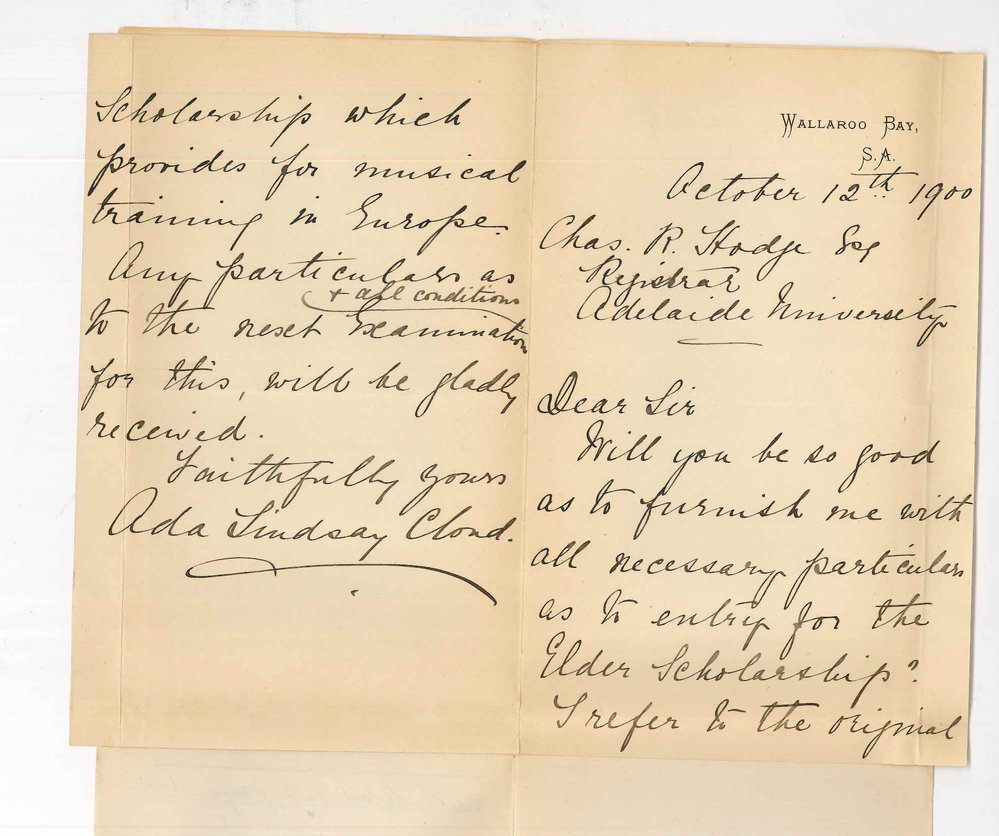 WALLAROO BAY,
S.A.
October 12th 1900
Chas. R. Hodge Esq
Registrar
Adelaide University
Dear Sir
Will you be so good
as to furnish me with
all necessary particulars
as to entry for the
Elder Scholarship?
I refer to the original
Scholarship which
provides for musical
training in Europe.
Any particulars as
+ all conditions
to the next Examination
for this, will be gladly
received.
Faithfully yours
Ada Lindsay Cloud.